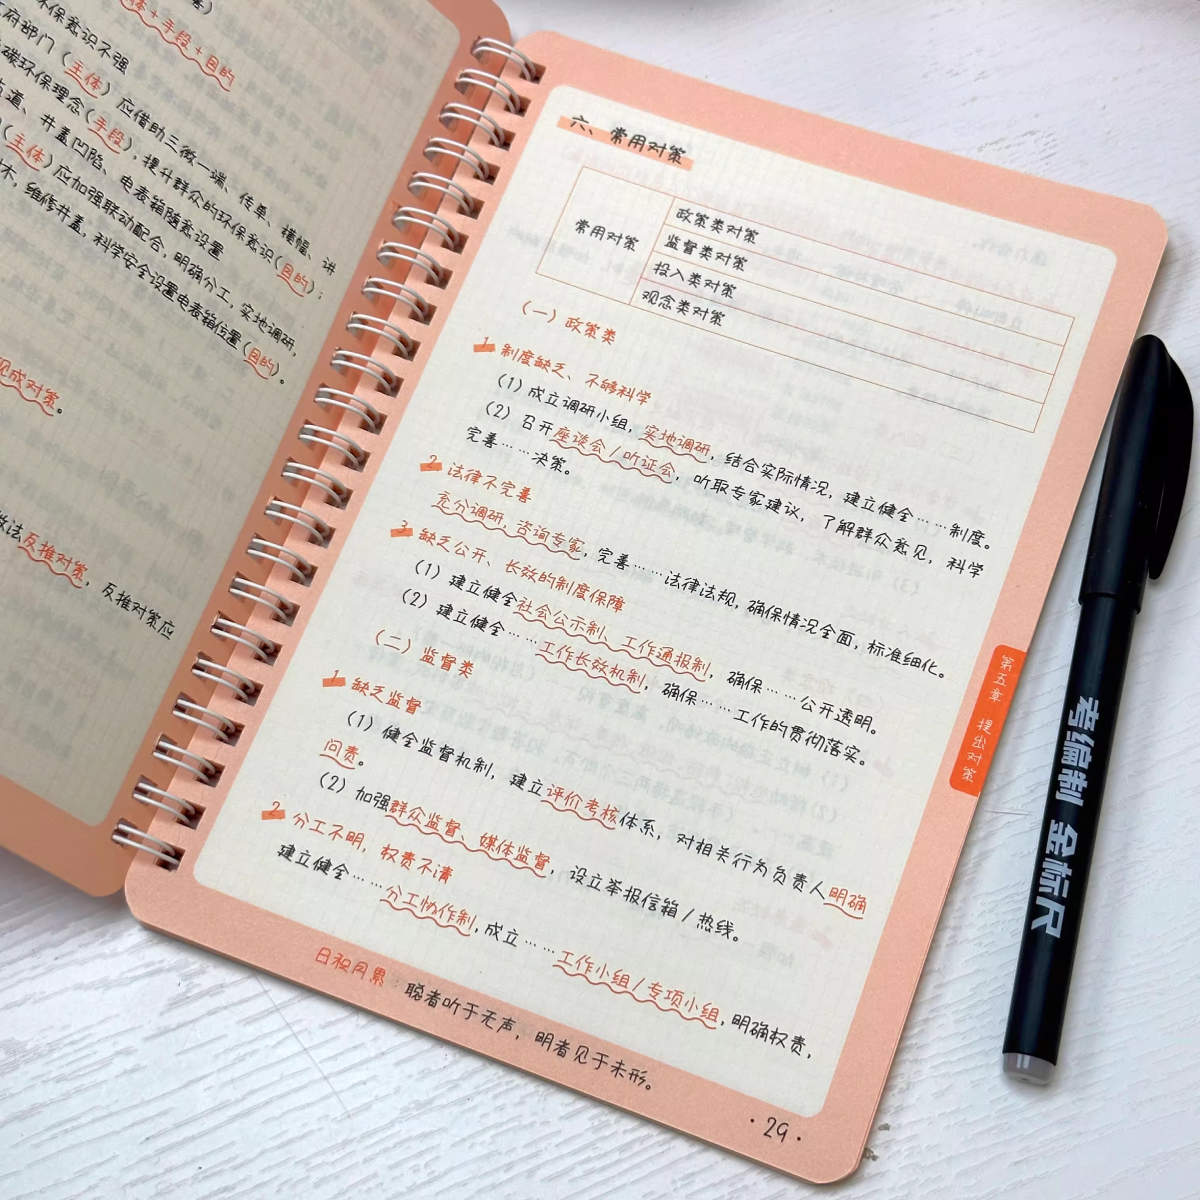 体+手段+目的
环保意识不强
府部门（主体）应借助三微一端、传单、横幅、讲
碳环保理念（手段），提升群众的环保意识（目的）；
道、井盖凹陷、电表箱随意设置
（主体）应加强联动配合，明确分工，实地调研，
木，维修井盖，科学安全设置电表箱位置（目的）。
现成对策。
做法反推对策，反推对策应
六、常用对策
常用对策
政策类对策
监督类对策
投入类对策
观念类对策
（一）政策类
1 制度缺乏、不够科学
（1）成立调研小组，实地调研，结合实际情况，建立健全……制度。
（2）召开座谈会/听证会，听取专家建议，了解群众意见，科学
完善……决策。
2 法律不完善
充分调研，咨询专家，完善……法律法规，确保情况全面，标准细化。
3 缺乏公开、长效的制度保障
（1）建立健全社会公示制、工作通报制，确保……公开透明。
（2）建立健全……工作长效机制，确保……工作的贯彻落实。
（二）监督类
1 缺乏监督
（1）健全监督机制，建立评价考核体系，对相关行为负责人明确
问责。
（2）加强群众监督、媒体监督，设立举报信箱/热线。
2 分工不明，权责不清
建立健全……分工协作制，成立……工作小组/专项小组，明确权责，
日积月累：聪者听于无声，明者见于未形。
·29·
第五章 提出对策
考编制 金标尺